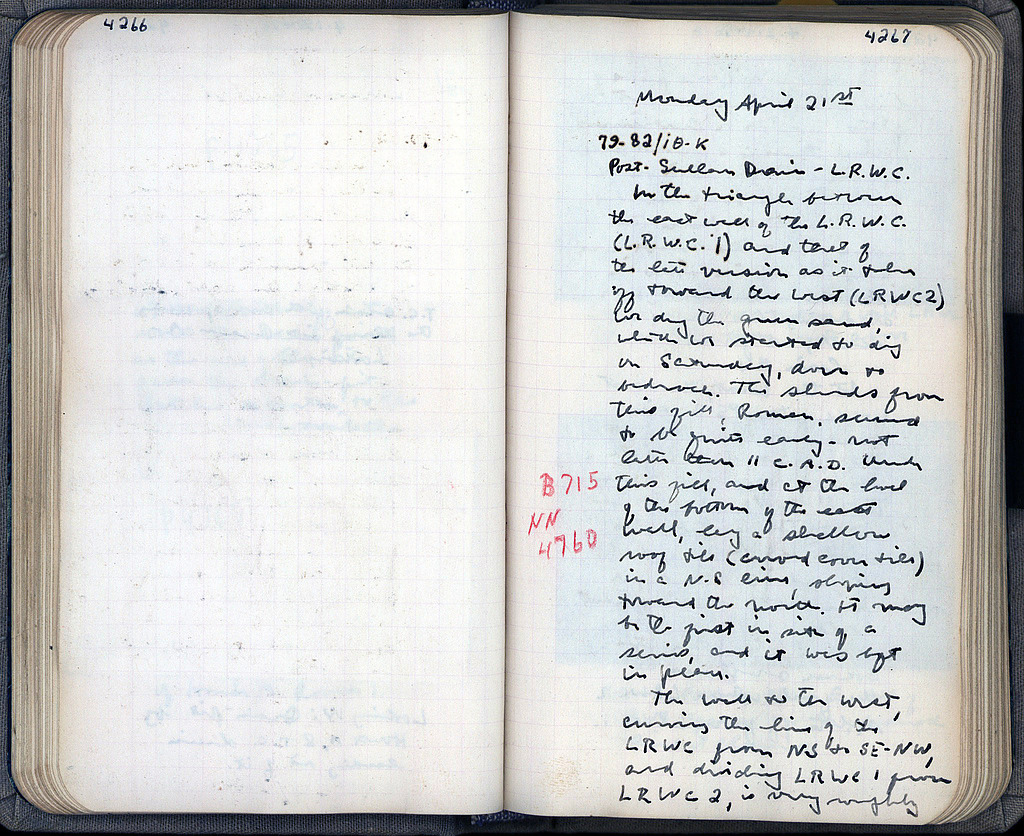 4266
4267
Monday April 21st
79-82/ΙΘ-Κ
Post-Sullan Drain - L.R.W.C.
In the triangle between
the east wall of the L.R.W.C.
(L.R.W.C. 1) and that of
the late version as it
off toward the west (LRWC2)
we dug the green sand,
which we started to dig
on Saturday, down to
bedrock. The sherds from
this fill, Roman, seemed
to be quite early - not
later than II C. A.D. Under
this fill, and at the level
of the bottom of the east
wall, lay a shallow
roof tile (curved cover tile)
in a N-S line, sloping
toward the north. It may
be the first in situ of a
series, and it was left
in place.
The wall to the west,
curving the line of the
LRWC from NS to SE-NW,
and dividing LRWC 1 from
LRWC 2, is very roughly
B715
NN
4760